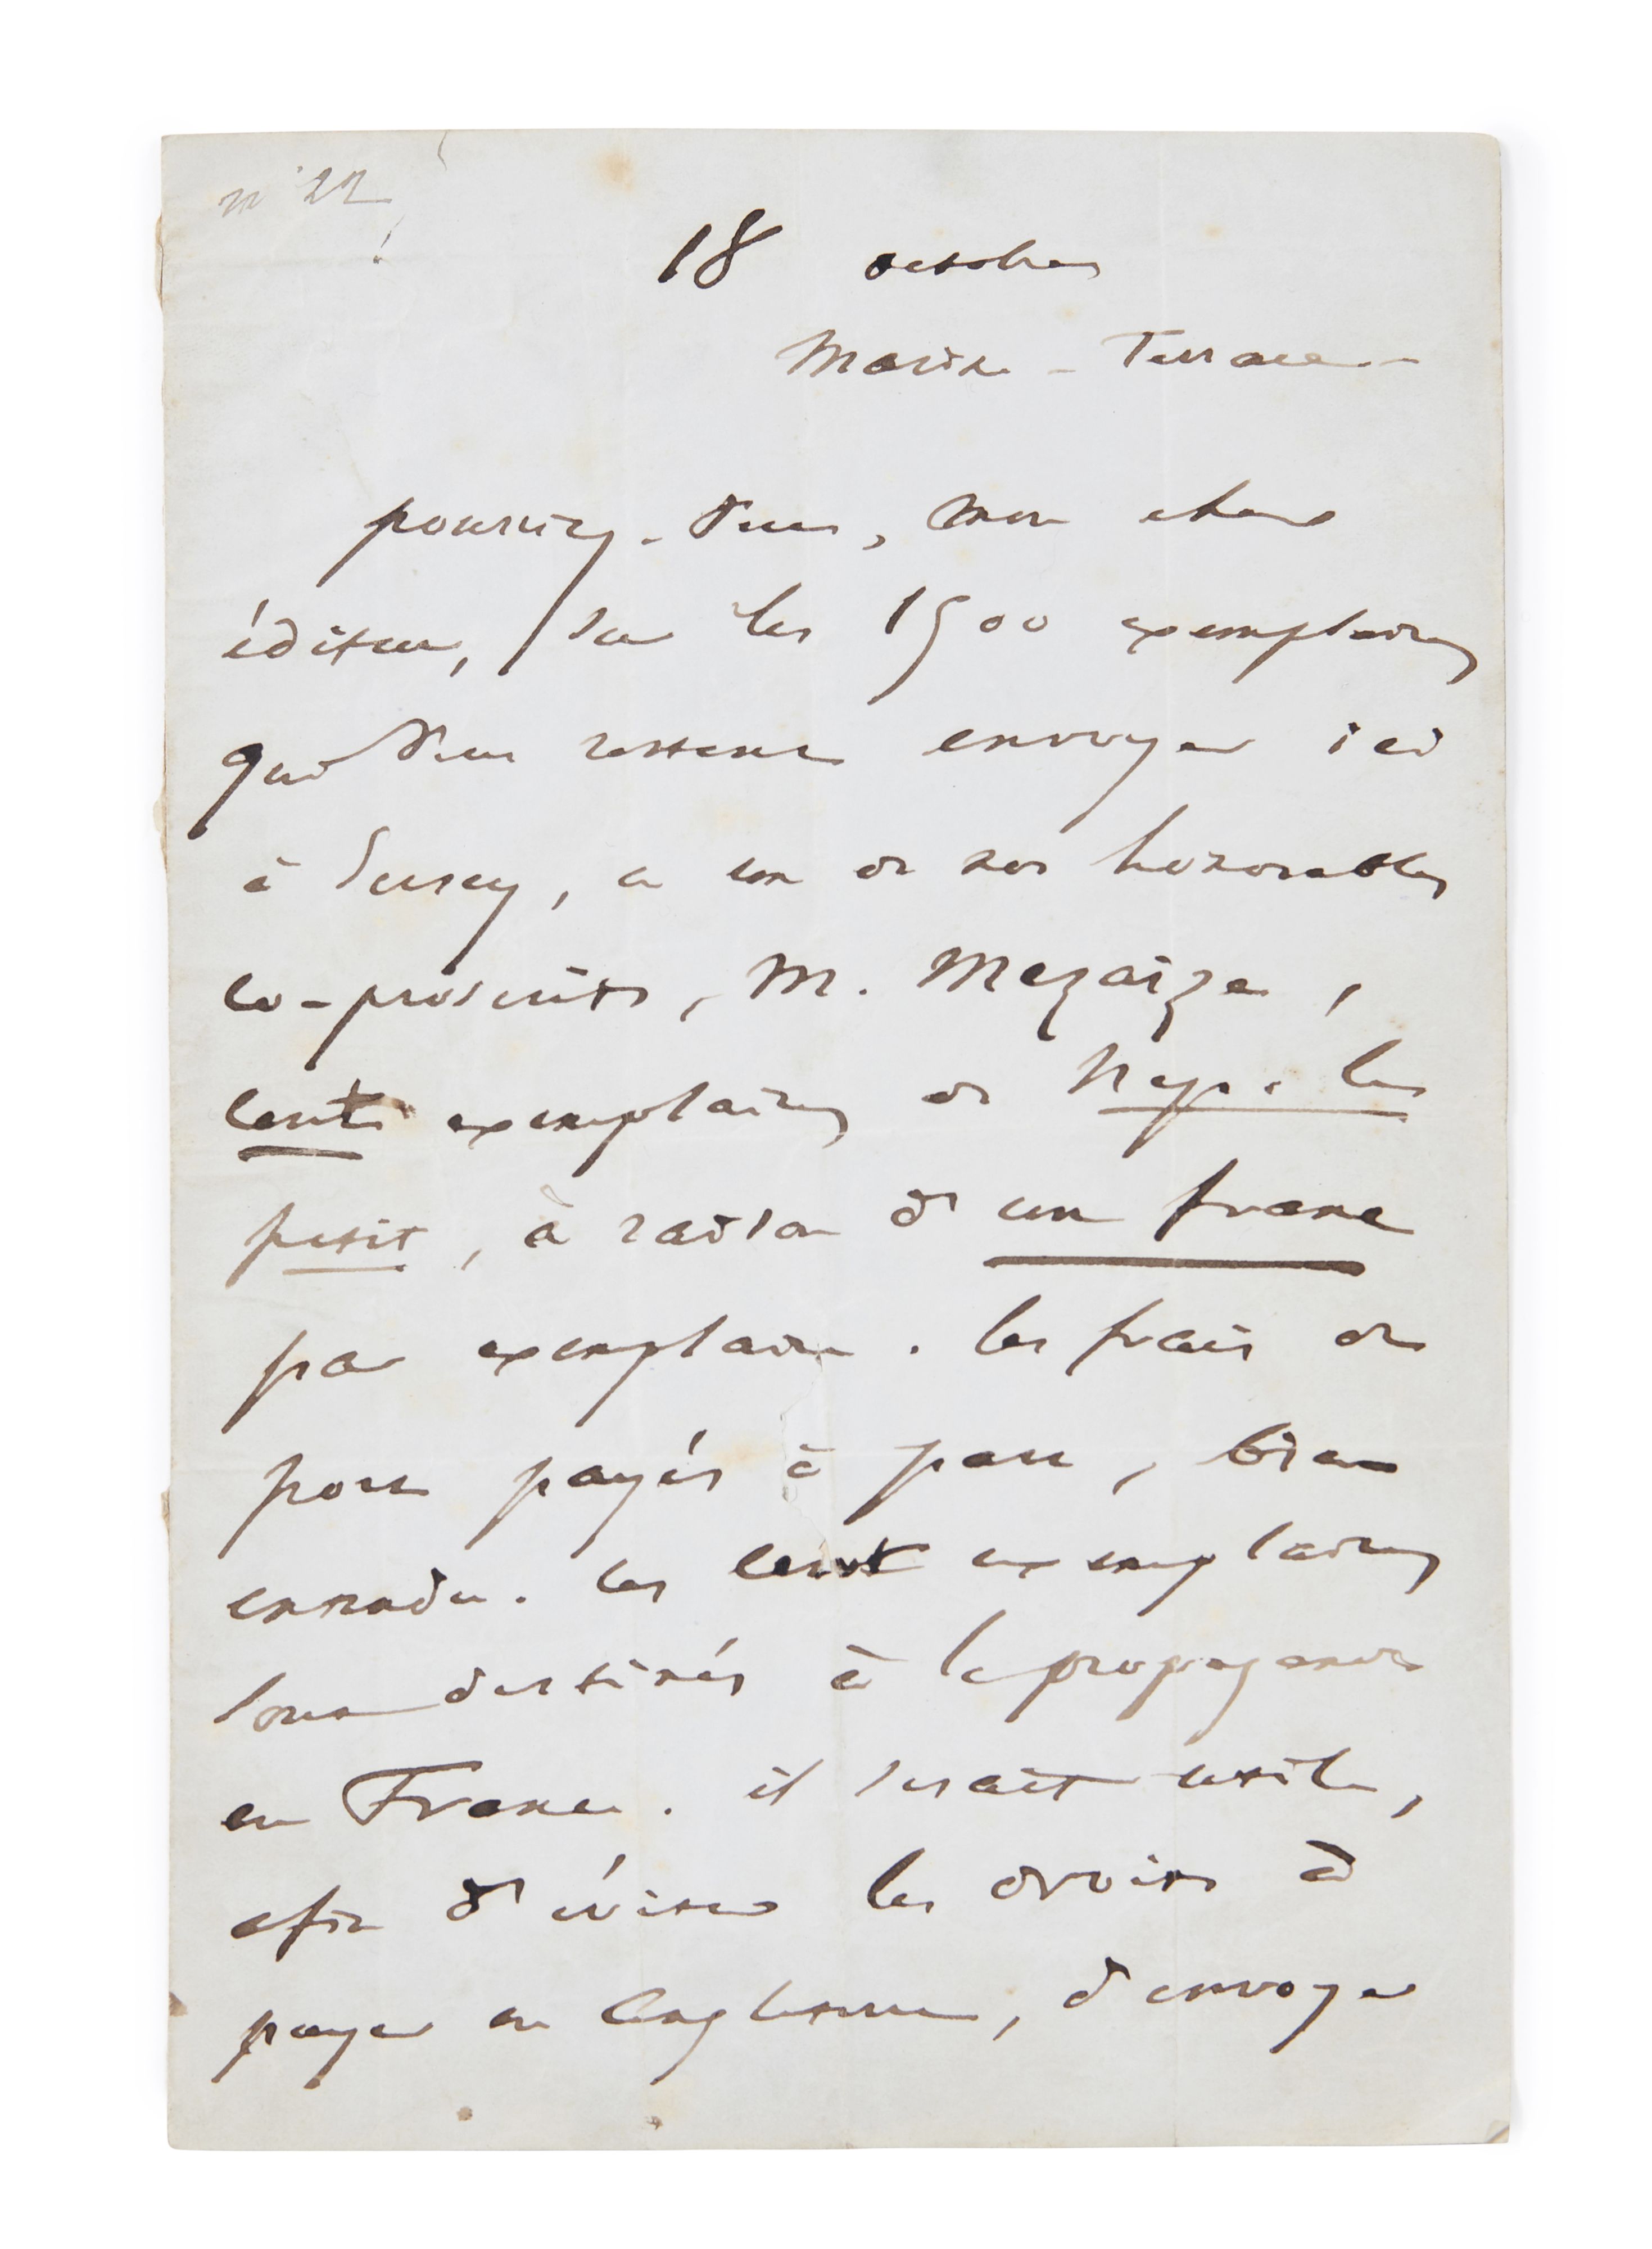 n° 22
18 octobre
Marine-Terrace
pourriez-vous, mon cher
éditeur, sur les 1500 exemplaires
qui vous restent envoyer ici
à Jersey, à un de nos honorables
co-proscrits, M. Mezaize,
cent exemplaires de Nap. le
petit, à raison de un franc
par exemplaire. les frais de
port payés à part, bien
entendu. les cent exemplaires
sont destinés à la propagande
en France. il serait utile,
afin d'éviter les droits à
payer en Angleterre, d'envoyer